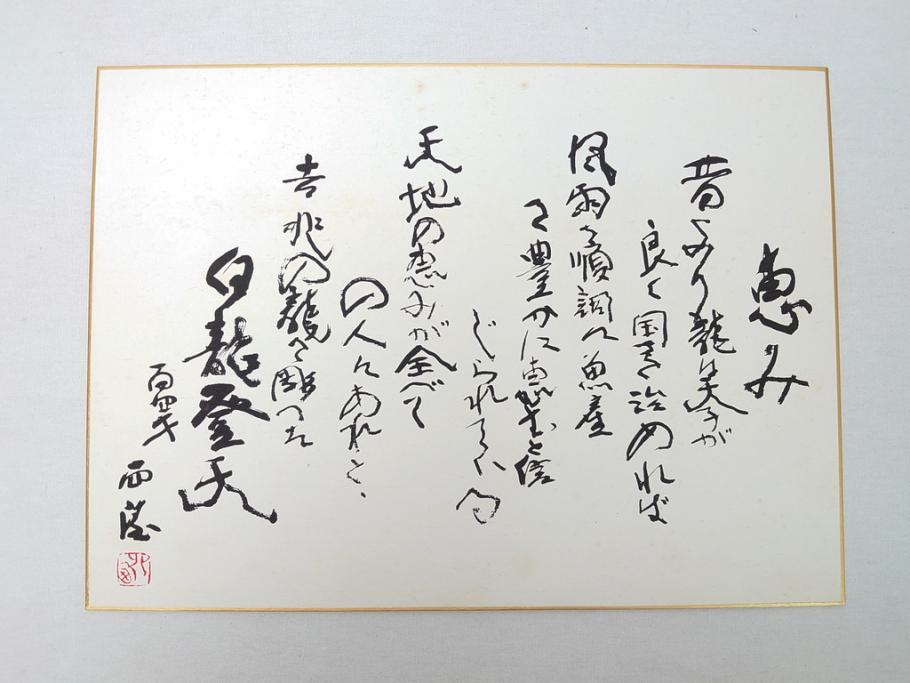 恵み
昔より龍は天子が
良く国を治めれば
風雨順調魚産
豊かに恵と信
じられている
天地の恵みが全べて
の人にあれと、
吉兆の龍を彫った
白龍登天
百四才
西望